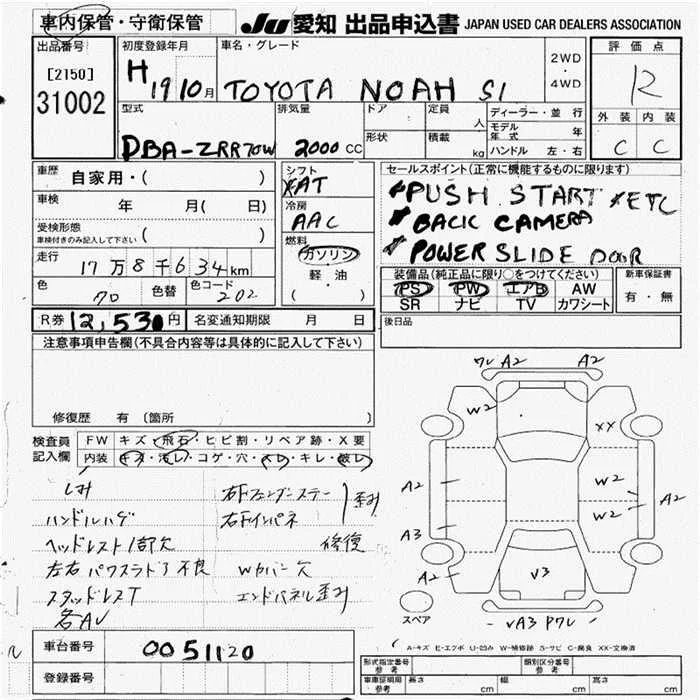 車内保管・守衛保管
JU 愛知 出品申込書 JAPAN USED CAR DEALERS ASSOCIATION
出品番号
[2150]
31002
初度登録年月
H 19 10月
車名・グレード
TOYOTA NOAH Si
2WD
・
4WD
評価点
R
外装 内装
C C
型式
DBA-ZRR70W
排気量
2000 CC
ドア
形状
定員
人
積載
kg
ディーラー・並行
モデル年式 年
ハンドル 左・右
車歴
自家用・( )
車検
年 月( 日)
受検形態
車検付きのみ記入して下さい ( )
走行
17万8千634km
色 色替 色コード
クロ 202
シフト
FAT
冷房
AAC
燃料
ガソリン
軽・油
( )
セールスポイント(正常に機能するものに限ります)
*PUSH START *ETC
*BACK CAMERA
*POWER SLIDE DOOR
装備品(純正品に限り○をつけてください)
PS PW エアB AW
SR ナビ TV カワシート
新車保証書
有・無
R券 12,530円 名変通知期限 月 日
後日品
注意事項申告欄(不具合内容等は具体的に記入して下さい)
修復歴 有 (箇所 )
検査員記入欄
FW キズ・飛石・ヒビ割・リペア跡・X要
内装 キズ・汚レ・コゲ・穴・スレ・キレ・破レ
シミ
ハンドルハゲ
ヘッドレスト1部欠
左右パワスラドア不良
スタッドレスT
各AV
右Fフェンダーステー
右Fインパネ
歪み
修復
Wカバー欠
エンドパネル歪み
ワレ A2 A2
W2
XX
A2
W2
W2
A2
A3
A2
V3
スペア
VA3 Pワレ
A-キズ E-エクボ U-凹み W-補修跡 S-サビ C-腐食 XX-交換済
車台番号
0051120
登録番号
形式指定番号
参考
類別区分番号
参考
車庫証明用
参考
長さ cm
幅 cm
高さ cm